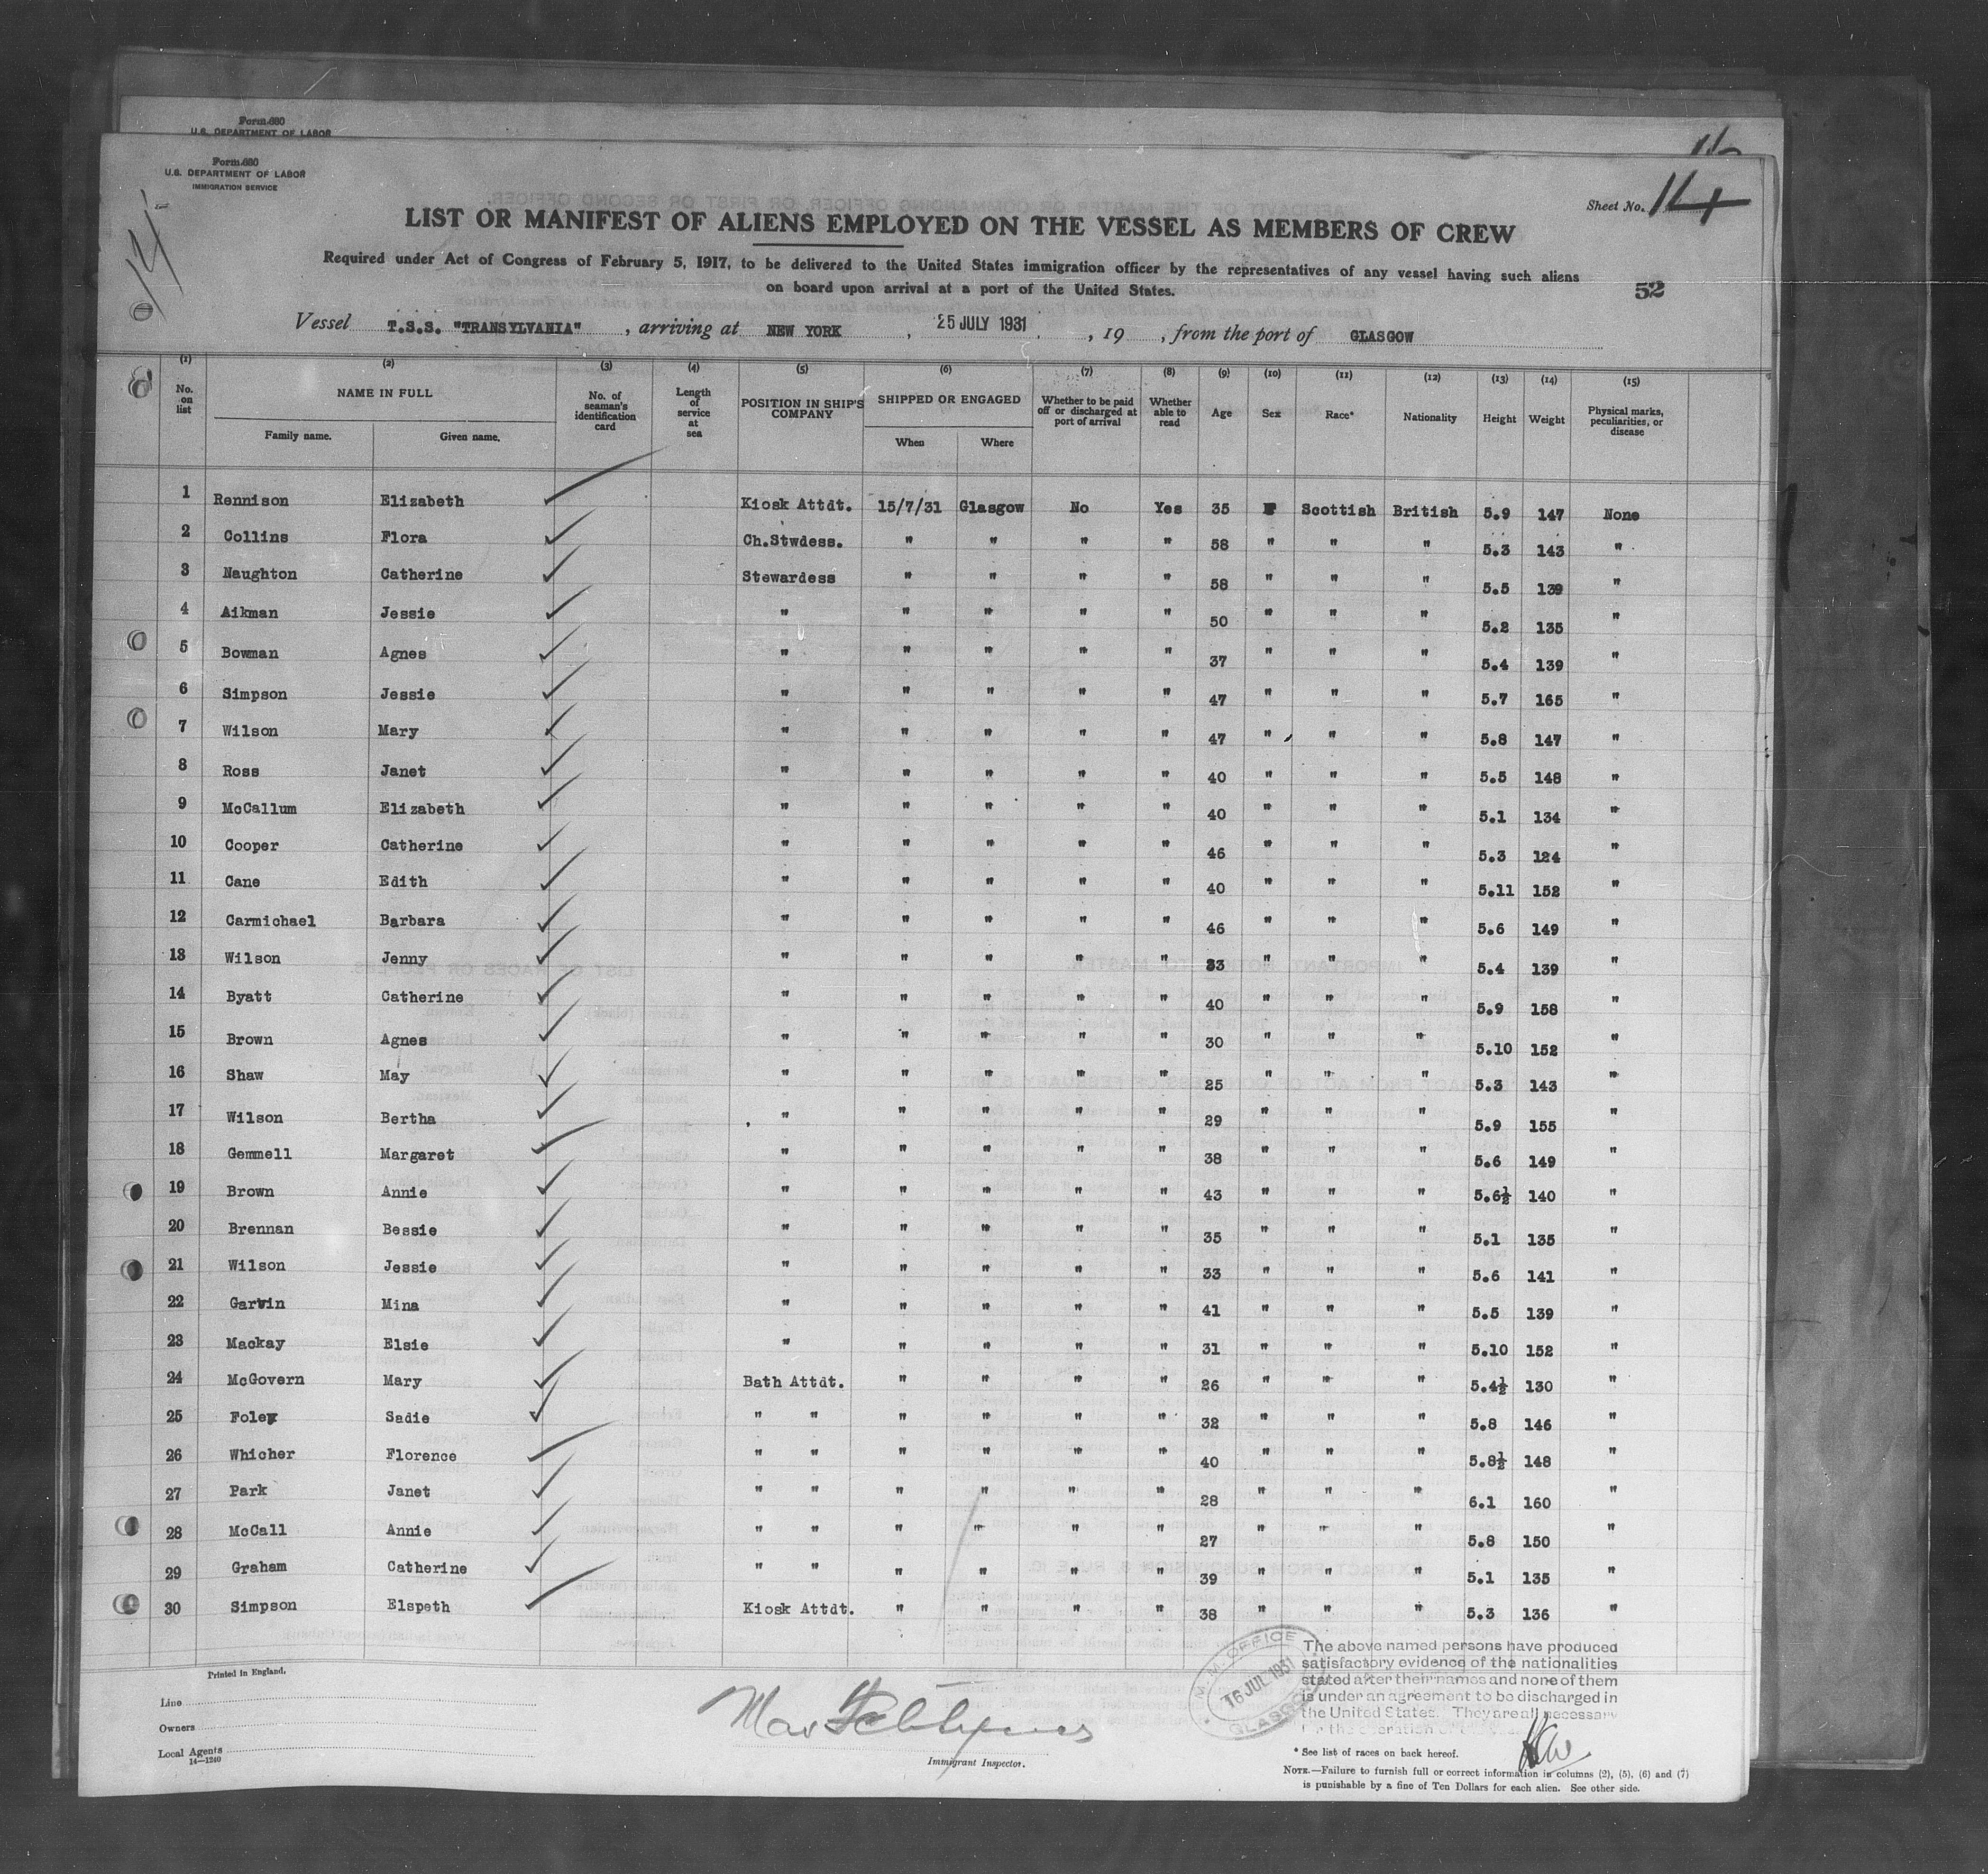 Form 680
U.S. DEPARTMENT OF LABOR
Form 680
U.S. DEPARTMENT OF LABOR
IMMIGRATION SERVICE
14
Sheet No. 14
LIST OR MANIFEST OF ALIENS EMPLOYED ON THE VESSEL AS MEMBERS OF CREW
Required under Act of Congress of February 5, 1917, to be delivered to the United States immigration officer by the representatives of any vessel having such aliens
on board upon arrival at a port of the United States.
52
Vessel T.S.S. "TRANSYLVANIA", arriving at NEW YORK, 25 JULY 1931, 19 , from the port of GLASGOW
(1) (2) (3) (4) (5) (6) (7) (8) (9) (10) (11) (12) (13) (14) (15)
No. on list NAME IN FULL Family name. Given name. No. of seaman's identification card Length of service at sea POSITION IN SHIP'S COMPANY SHIPPED OR ENGAGED When Where Whether to be paid off or discharged at port of arrival Whether able to read Age Sex Race* Nationality Height Weight Physical marks, peculiarities, or disease
1 Rennison Elizabeth Kiosk Attdt. 15/7/31 Glasgow No Yes 35 F Scottish British 5.9 147 None
2 Collins Flora Ch.Stwdess. " " " " 58 " " " 5.3 143 "
3 Naughton Catherine Stewardess " " " " 58 " " " 5.5 139 "
4 Aikman Jessie " " " " " 50 " " " 5.2 135 "
5 Bowman Agnes " " " " " 37 " " " 5.4 139 "
6 Simpson Jessie " " " " " 47 " " " 5.7 165 "
7 Wilson Mary " " " " " 47 " " " 5.8 147 "
8 Ross Janet " " " " " 40 " " " 5.5 148 "
9 McCallum Elizabeth " " " " " 40 " " " 5.1 134 "
10 Cooper Catherine " " " " " 46 " " " 5.3 124 "
11 Cane Edith " " " " " 40 " " " 5.11 152 "
12 Carmichael Barbara " " " " " 46 " " " 5.6 149 "
13 Wilson Jenny " " " " " 33 " " " 5.4 139 "
14 Byatt Catherine " " " " " 40 " " " 5.9 158 "
15 Brown Agnes " " " " " 30 " " " 5.10 152 "
16 Shaw May " " " " " 25 " " " 5.3 143 "
17 Wilson Bertha " " " " " 29 " " " 5.9 155 "
18 Gemmell Margaret " " " " " 38 " " " 5.6 149 "
19 Brown Annie " " " " " 43 " " " 5.6½ 140 "
20 Brennan Bessie " " " " " 35 " " " 5.1 135 "
21 Wilson Jessie " " " " " 33 " " " 5.6 141 "
22 Garvin Mina " " " " " 41 " " " 5.5 139 "
23 Mackay Elsie " " " " " 31 " " " 5.10 152 "
24 McGovern Mary Bath Attdt. " " " " 26 " " " 5.4½ 130 "
25 Foley Sadie " " " " " " 32 " " " 5.8 146 "
26 Whicher Florence " " " " " " 40 " " " 5.8½ 148 "
27 Park Janet " " " " " " 28 " " " 6.1 160 "
28 McCall Annie " " " " " " 27 " " " 5.8 150 "
29 Graham Catherine " " " " " " 39 " " " 5.1 135 "
30 Simpson Elspeth Kiosk Attdt. " " " " 38 " " " 5.3 136 "
Printed in England.
Line
Owners
Local Agents
14—1240
Immigrant Inspector.
M.M. OFFICE
16 JUL 1931
GLASGOW
The above named persons have produced
satisfactory evidence of the nationalities
stated after their names and none of them
is under an agreement to be discharged in
the United States. They are all necessary
for the operation of
* See list of races on back hereof.
NOTE.—Failure to furnish full or correct information in columns (2), (5), (6) and (7)
is punishable by a fine of Ten Dollars for each alien. See other side.